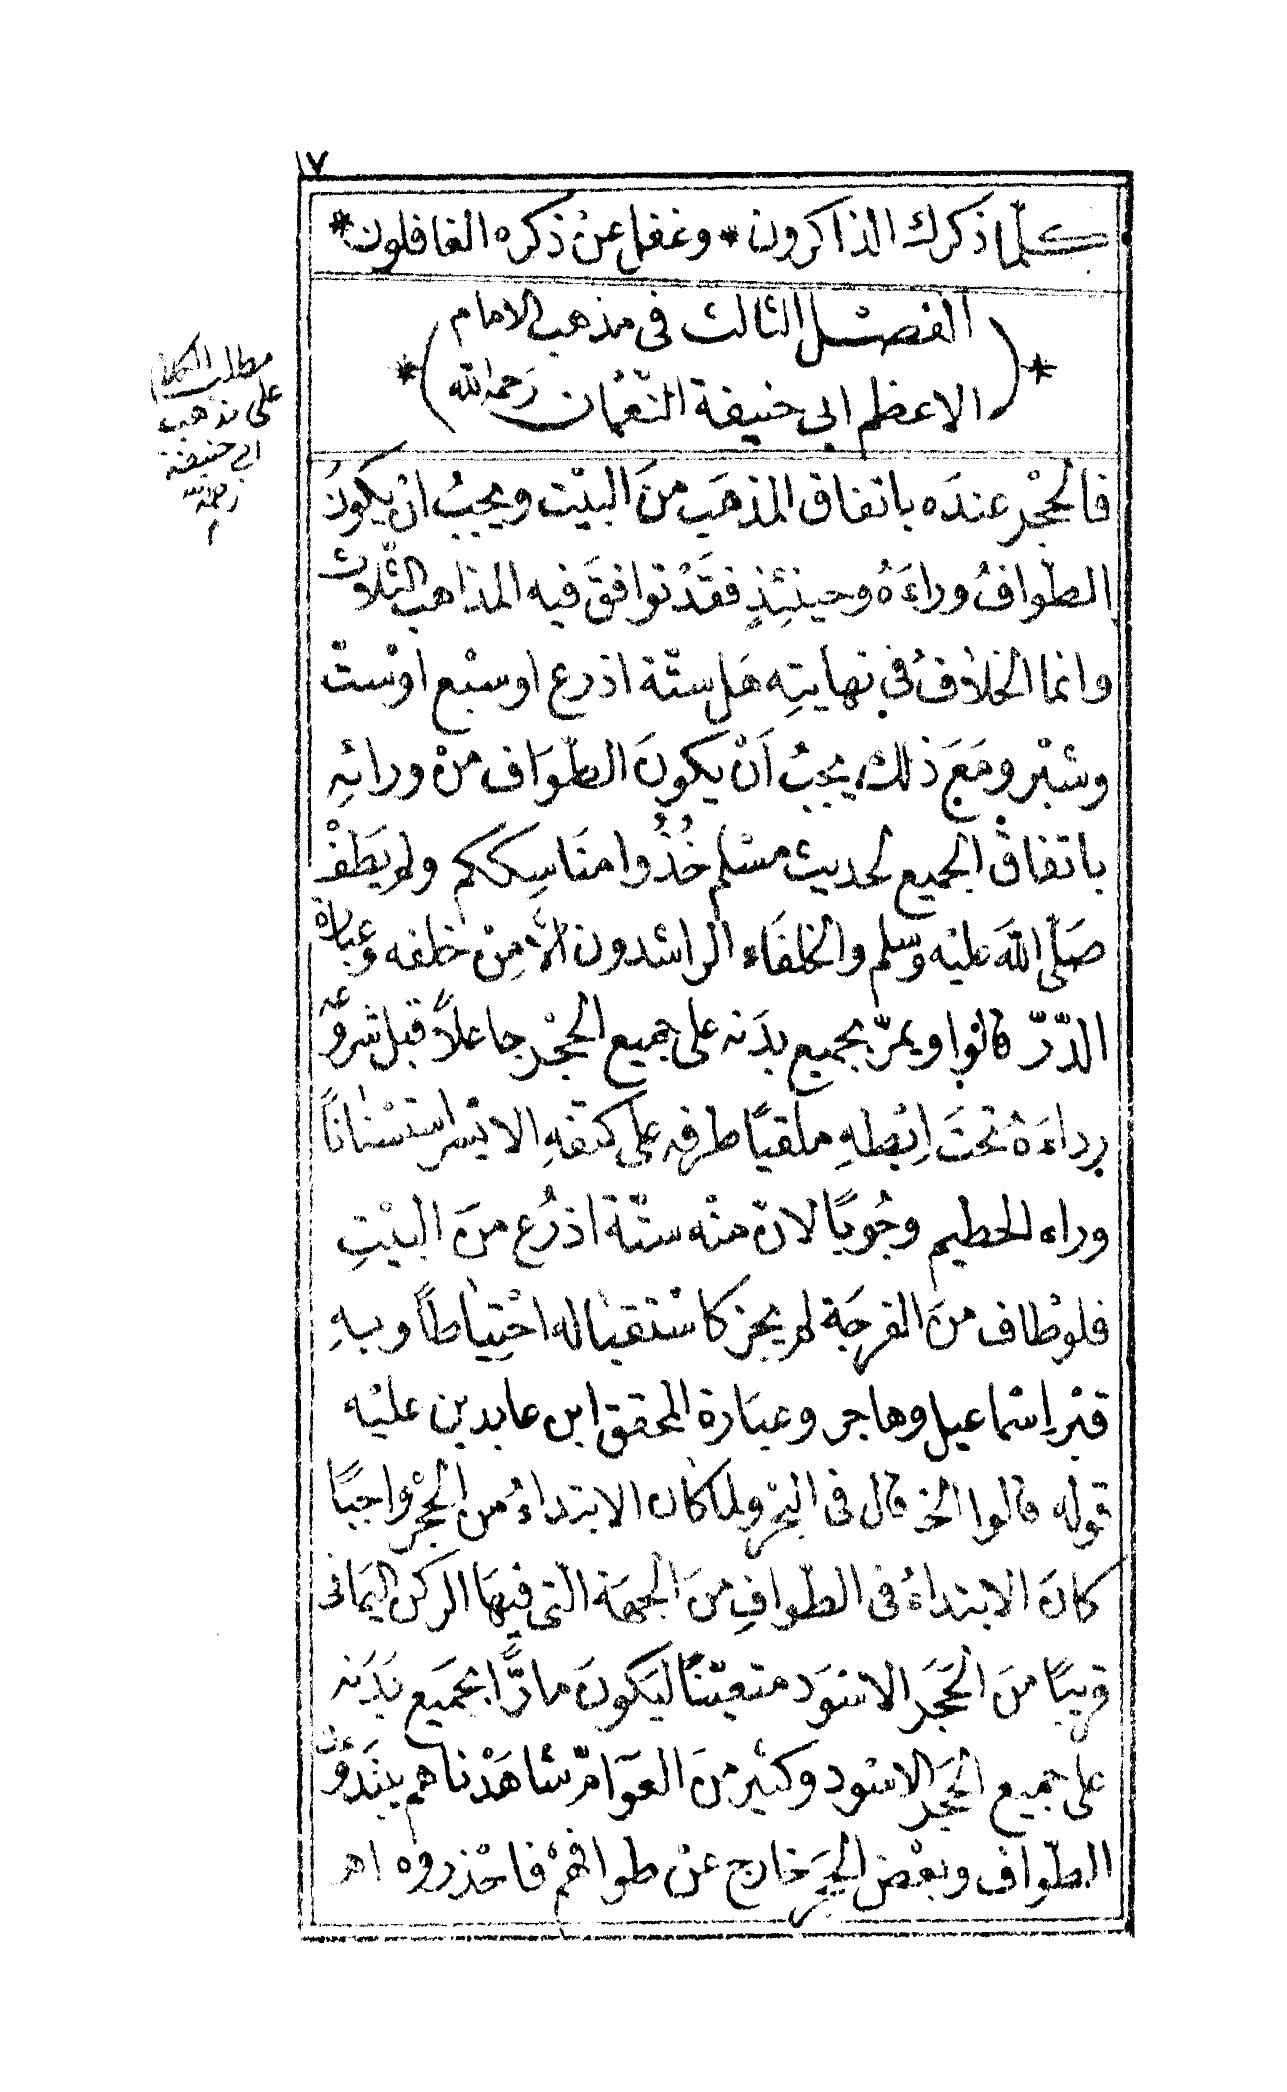 ١٧
كلّما ذكرك الذاكرون * وغفل عنْ ذكره الغافلون *
* ( الفصْل الثالث في مذهب الامام
الاعظم ابي حنيفة النّعْمان رَحمه الله ) *
مطلب الكلام
على مذهب
ابي حنيفة
رحمه الله
م
فالحجْر عندَه باتفاق المذهَب منَ البيْت ويجبُ انْ يكونَ
الطّوافُ وراءَهُ وحينئِذٍ فقَدْ توافقَ فيه المذاهب الثّلاث
وانما الخلافُ في نهايتِه هَل ستّة اذرع او سبْع اوْستّ
وشبْر ومَعَ ذلك يجبُ اَنْ يكونَ الطّوَاف منْ ورائِهِ
باتفاق الجميع لحديث مسْلم خُذُوا منَاسِككم ولم يَطفْ
صَلّى اللهَ عليْه وسلم والخلفَاء الراشدون الاّ مِنْ خلفه وَعبارة
الدّرّ قالوا ويمرّ بجميع بدَنه على جميع الحجْر جاعلاً قبل شروعه
رداءَهُ تحتَ اِبْطهِ ملقيًا طرفه على كتفهِ الايْسر استسْناناً
وراء الحطيم وجُوبًا لانّ منْه ستّة اذرُع منَ البيْتِ
فلوْطاف منَ الفرجَة لم يجز كاسْتقباله احْتياطاً وبهِ
قبْر اِسْماعيل وهاجر وعبَارة المحقق ابن عابدين عليْه
قوله قالوا الخ قال في البحْر ولما كان الابتداءُ من الحجْر واجبًا
كانَ الابتداءُ في الطّوافِ منَ الجهَة التي فيهَا الركن اليمَانى
قريبًا منَ الحَجَر الاسْوَد متعيّنًا ليَكونَ مارًّا بجمَيع بَدَنه
على جميع الحَجَر الاسْود وكثير منَ العَوَامّ شاهَدْناهم يبتَدؤن
الطّواف وبعْض الحجَر خارج عنْ طوافهمْ فاحْذروه اهـ